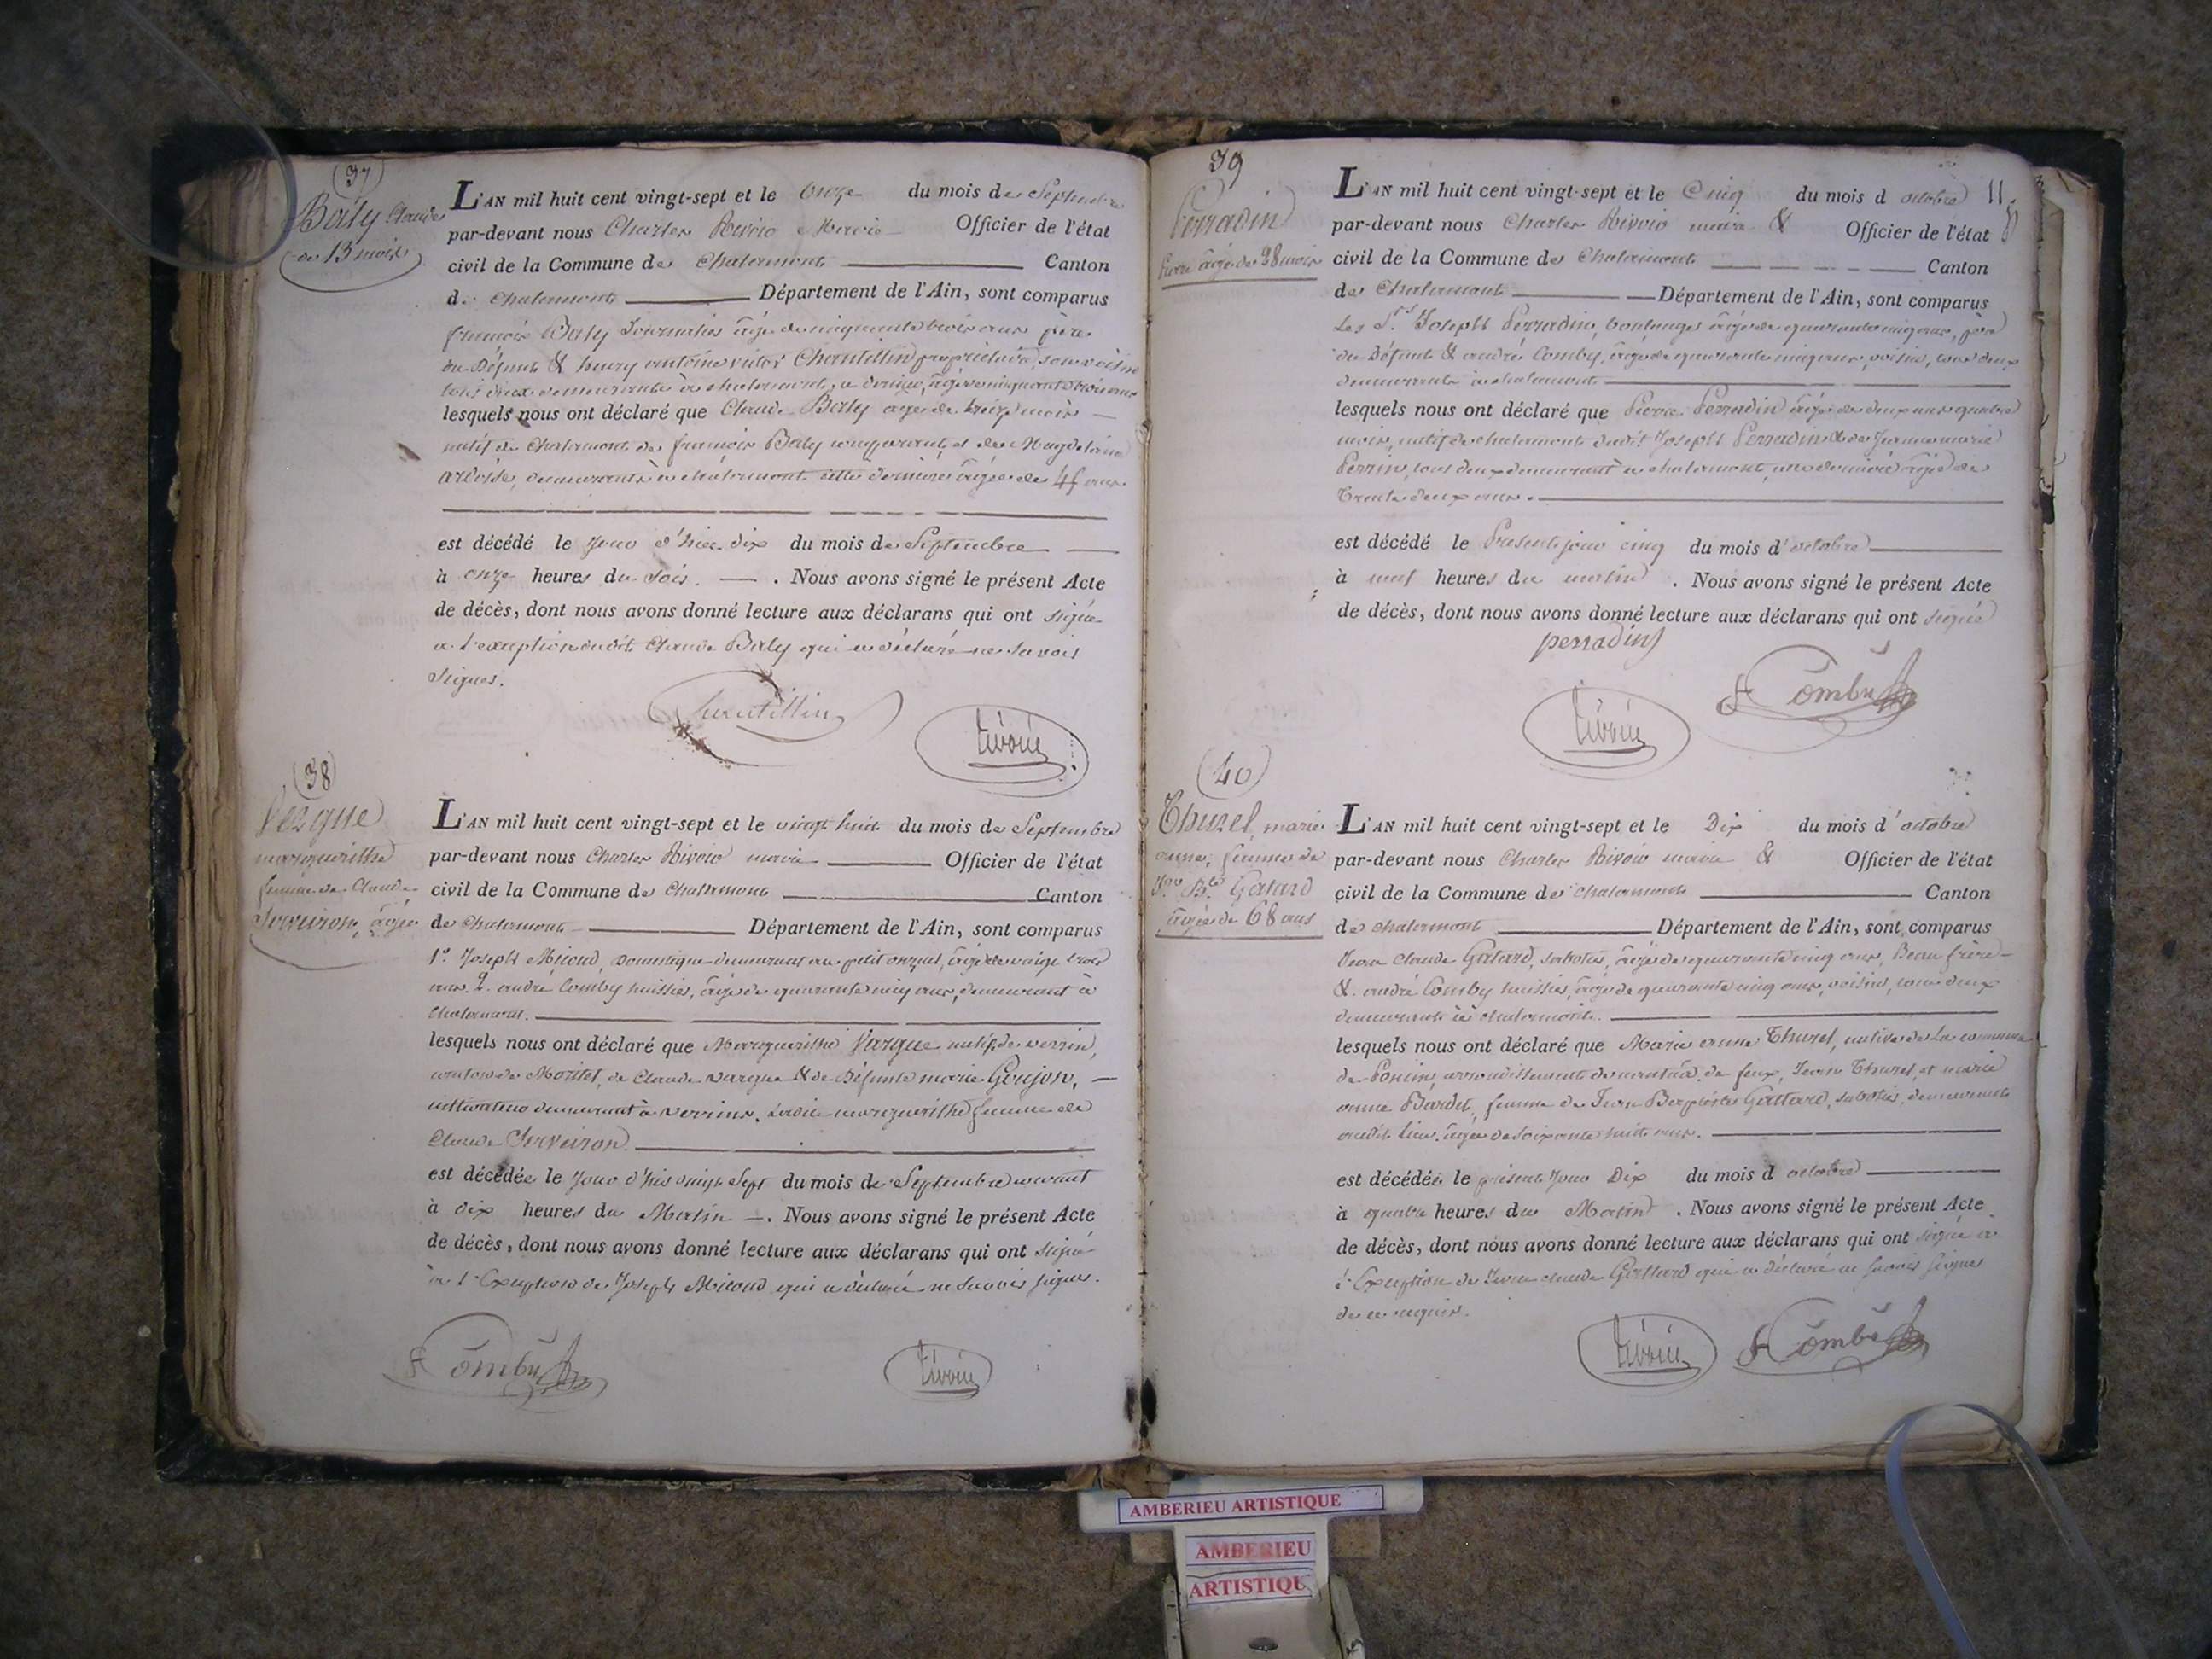 (37)
Baly Claude
de 13 mois
L'AN mil huit cent vingt-sept et le onze du mois de Septembre
par-devant nous Charles Rivoir Mairie Officier de l'état
civil de la Commune de Chalamont Canton
de Chalamont Département de l'Ain, sont comparus
francois Baly Journalier âgé de cinquante trois ans père
du Défunt & henry antoine victor Chantillin propriétaire, son voisin
tous deux demeurants à chalamont, ce dernier, âgé de cinquante trois ans
lesquels nous ont déclaré que Claude Baly age de treize mois
natif de Chalamont de francois Baly comparant, et de Magdelaine
demeurants à chalamont cette dernière âgée de 45 ans.
est décédé le jour d'hier dix du mois de Septembre
à onze heures du soir. Nous avons signé le présent Acte
de décès, dont nous avons donné lecture aux déclarans qui ont signé
a l'exception dudit Claude Baly qui a déclaré ne savoir
signer.
rivoir
(38)
Vergue
marguerithe
femme de Claude
Serveiron, âgée
L'AN mil huit cent vingt-sept et le vingt huit du mois de Septembre
par-devant nous Charles Rivoir mairie Officier de l'état
civil de la Commune de Chalamont Canton
de Chalamont Département de l'Ain, sont comparus
1° Joseph Micoud, Domestique demeurant au petit âgé de vingt trois
ans, 2° andré Comby huissier, âgé de quarante cinq ans, demeurant à
Chalamont.
lesquels nous ont déclaré que Marguerithe Vargue natif de verrin,
canton de de Claude vargue & de Défunte marie Goujon,
cultivateur demeurant à Ladite marguerithe femme de
Claude Serveiron
est décédée le jour d'hier vingt Sept du mois de Septembre courant
à dix heures du Matin. Nous avons signé le présent Acte
de décès, dont nous avons donné lecture aux déclarans qui ont signé
à l'Exception de Joseph Micoud qui a déclaré ne savoir signer.
Comby
rivoir
39
Perradin
Pierre âgé de 28 mois
L'AN mil huit cent vingt-sept et le Cinq du mois d octobre
par-devant nous Charles Rivoir maire & Officier de l'état
civil de la Commune de Chalamont Canton
de Chalamont Département de l'Ain, sont comparus
Les Srs Joseph Perradin, boulanger âgé de quarante cinq ans, père
du Défunt & andré Comby, âgé de quarante cinq ans, voisin, tous deux
demeurants à chalamont
lesquels nous ont déclaré que Pierre Perradin âgé de deux ans quatre
mois, natif de chalamont dudit Joseph Perradin & de Jeanne marie
Perrin, tous deux demeurant à chalamont, dernière âgée de
trente deux ans.
est décédé le Présent jour cinq du mois d'octobre
à neuf heures du matin. Nous avons signé le présent Acte
de décès, dont nous avons donné lecture aux déclarans qui ont signé
perradin
Comby
rivoir
(40)
Thurel, marie
anne, femme de
Jean Bte Gatard
âgée de 68 ans
L'AN mil huit cent vingt-sept et le Dix du mois d'octobre
par-devant nous Charles Rivoir mairie & Officier de l'état
civil de la Commune de Chalamont Canton
de Chalamont Département de l'Ain, sont comparus
Jean Claude Gatard, sabotier, âgé de quarante cinq ans, Beau frère
& andré Comby huissier, âgé de quarante cinq ans, voisin, tous deux
demeurants à chalamont.
lesquels nous ont déclaré que Marie anne Thurel, native de La commune
de Poncin, arrondissement de nantua, de feux, Jean Thurel, et marie
anne Bardet, femme de Jean Baptiste Gattard, sabotier, demeurant
audit lieu, âgée de soixante huit ans.
est décédée le présent jour Dix du mois d octobre
à quatre heures du Matin. Nous avons signé le présent Acte
de décès, dont nous avons donné lecture aux déclarans qui ont signé a
l'Exception de Jean claude Gattard qui a déclaré ne savoir signer
de ce requis.
rivoir
Comby
AMBERIEU ARTISTIQUE
AMBERIEU
ARTISTIQU